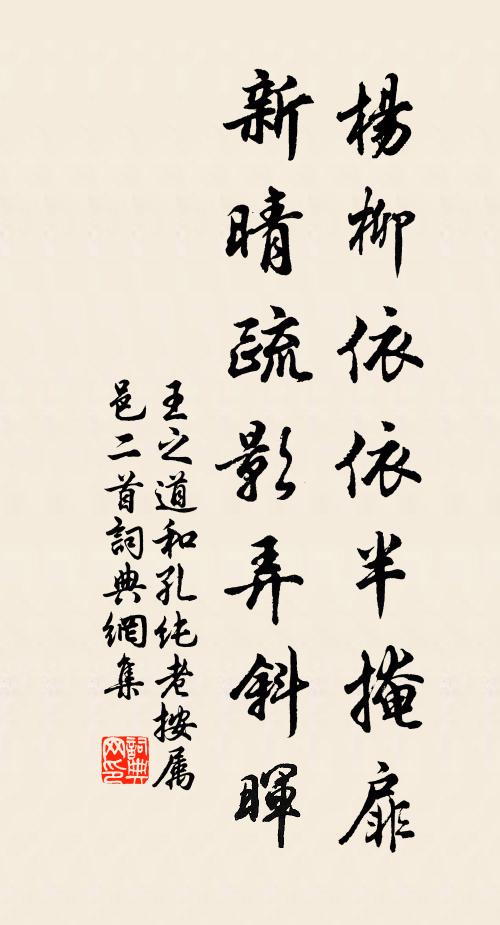 楊柳依依半掩扉
新晴疏影弄斜暉
王之道和孔純老按屬
邑二首詞典網集
詞典
网印